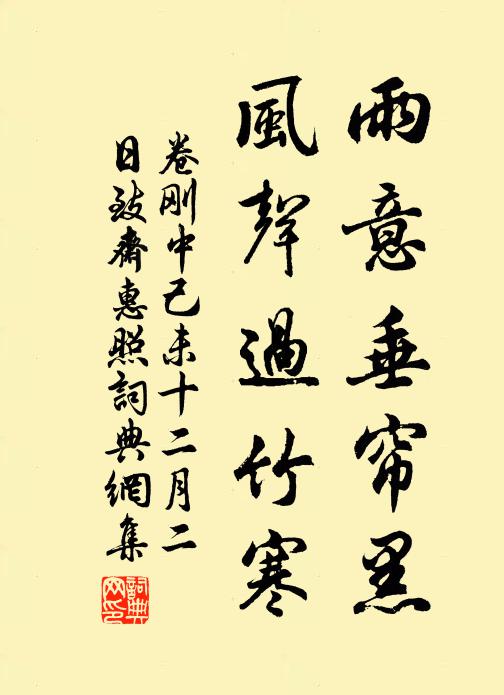 雨意垂帘黑
風聲過竹寒
卷刚中己未十二月二
日致齋惠照詞典網集
詞典